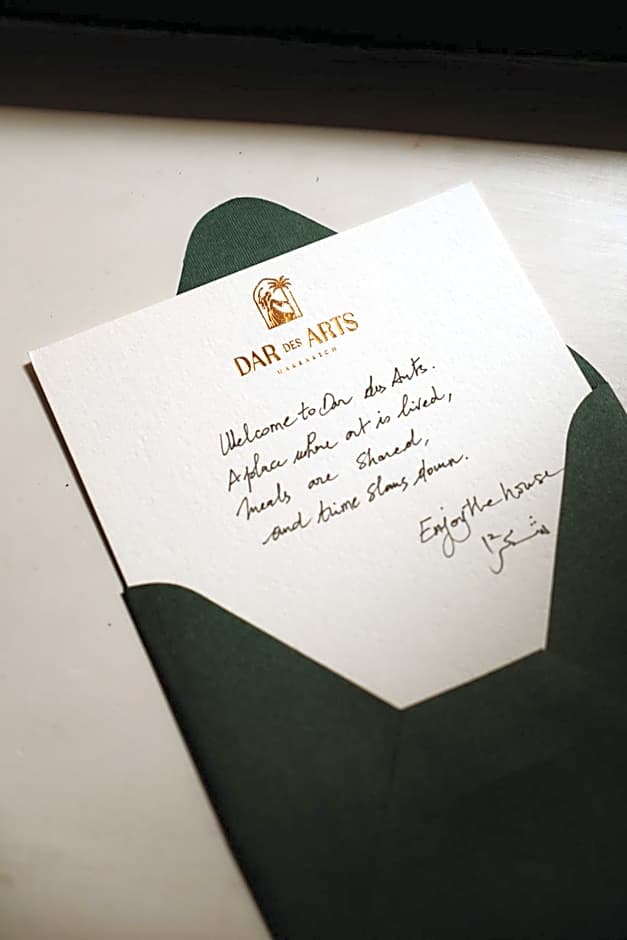 DAR DES ARTS
MARRAKECH
Welcome to Dar des Arts.
A place where art is lived,
meals are shared,
and time slows down.
Enjoy the house
شكرا